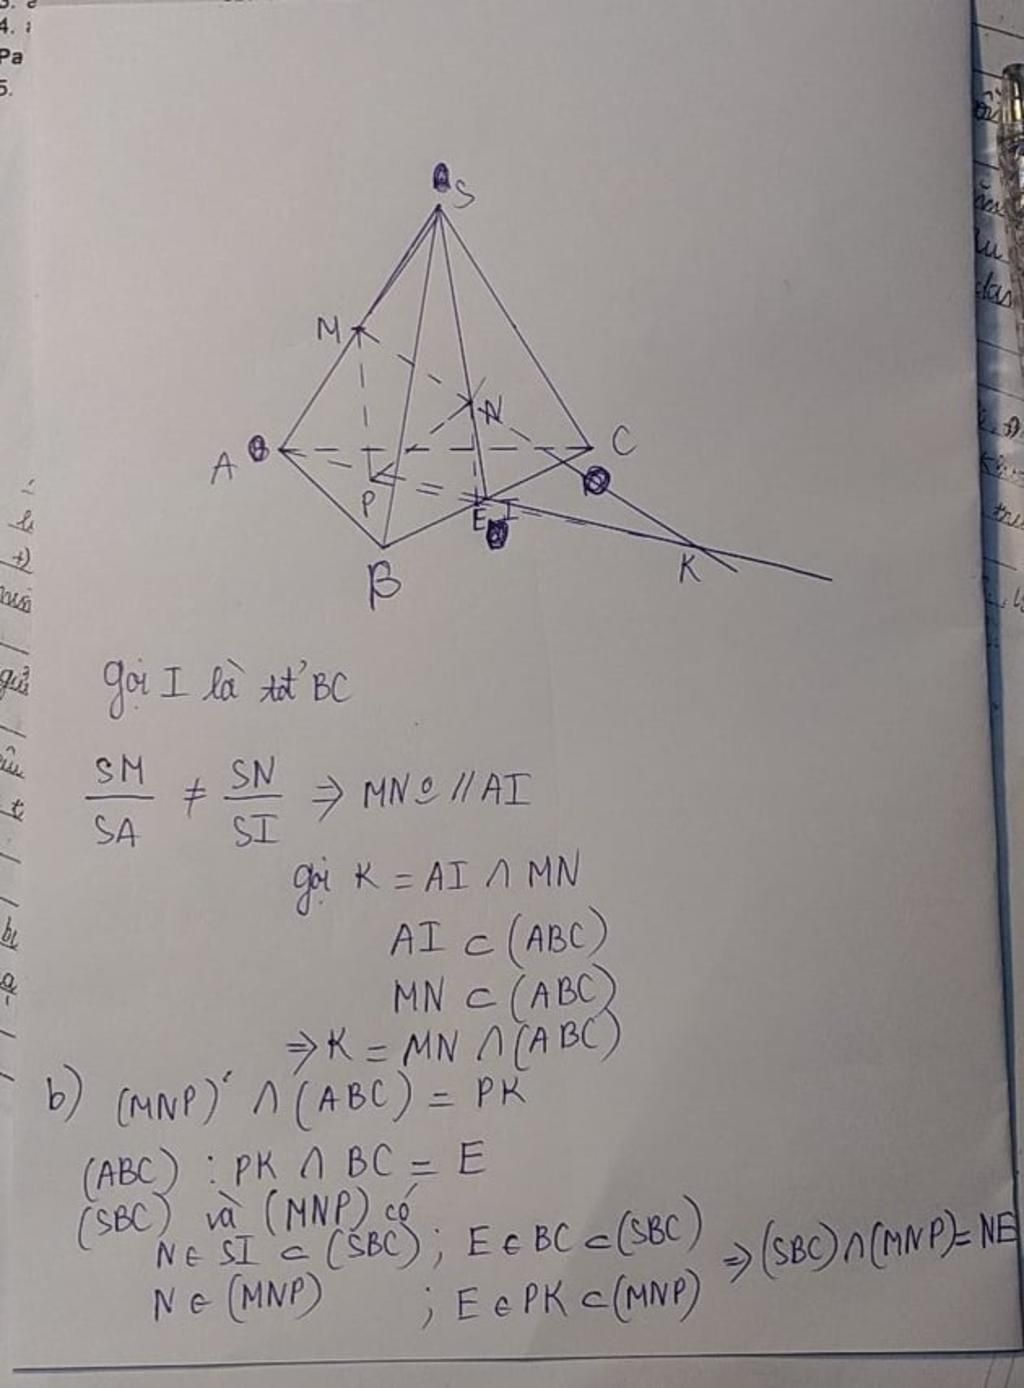 4.
Pa
5.
S
M
N
A
C
P
E I
K
B
gọi I là tđ BC
SM/SA ≠ SN/SI ⇒ MN o // AI
gọi K = AI ∩ MN
AI ⊂ (ABC)
MN ⊂ (ABC)
⇒ K = MN ∩ (ABC)
b) (MNP) ∩ (ABC) = PK
(ABC) : PK ∩ BC = E
(SBC) và (MNP) có
N ∈ SI ⊂ (SBC) ; E ∈ BC ⊂ (SBC) ⇒ (SBC) ∩ (MNP) = NE
N ∈ (MNP) ; E ∈ PK ⊂ (MNP)